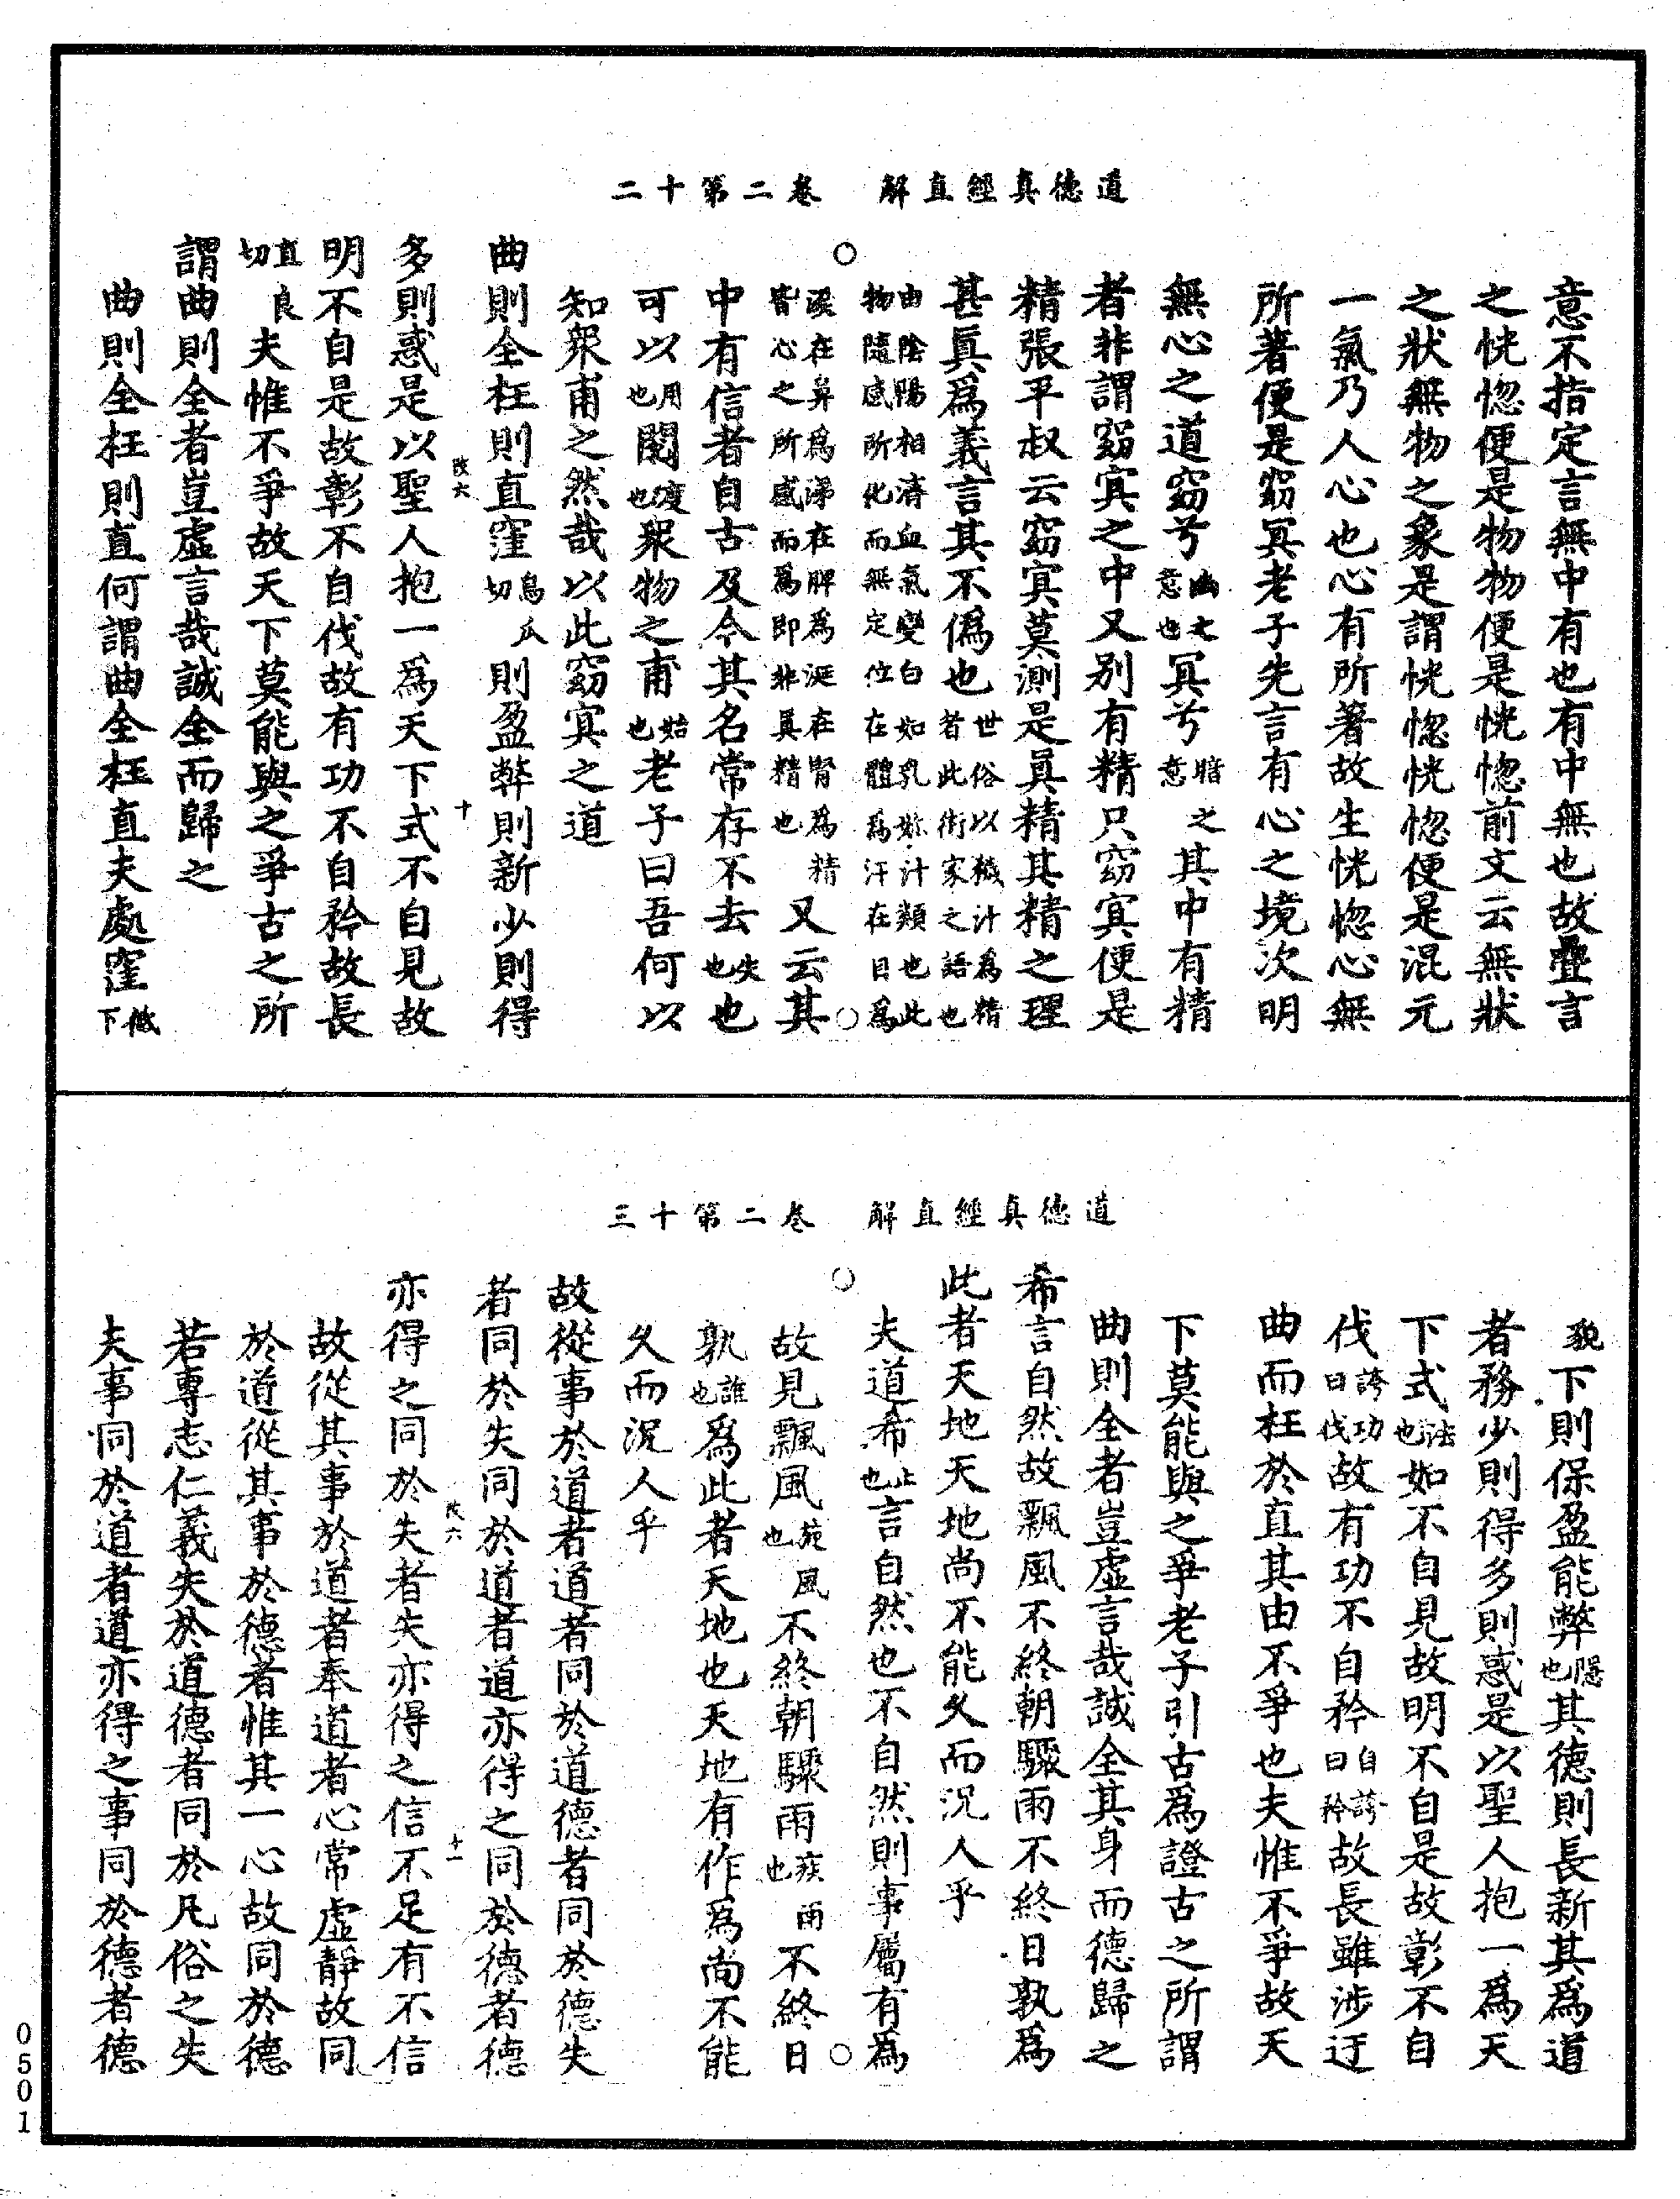 道德真經直解　卷二第十二
意不指定言無中有也有中無也故疊言
之恍惚便是物物便是恍惚前文云無狀
之狀無物之象是謂恍惚恍惚便是混元
一氣乃人心也心有所著故生恍惚心無
所著便是窈冥老子先言有心之境次明
無心之道窈兮幽之意也冥兮暗之意其中有精
者非謂窈冥之中又別有精只窈冥便是
精張平叔云窈冥莫測是真精其精之理
甚真爲義言其不僞也世俗以穢汁爲精者此術家之語也
由陰陽相濟血氣變白如乳如汁類也此物隨感所化而無定位在體爲汗在目爲
淚在鼻爲涕在脾爲涎在腎爲精皆心之所感而爲即非真精也又云其
中有信者自古及今其名常存不去失也也
可以用也閱度也衆物之甫始也老子曰吾何以
知衆甫之然哉以此窈冥之道
曲則全枉則直窪烏瓜切則盈弊則新少則得
改六　十
多則惑是以聖人抱一爲天下式不自見故
明不自是故彰不自伐故有功不自矜故長
直良切夫惟不爭故天下莫能與之爭古之所
謂曲則全者豈虛言哉誠全而歸之
曲則全枉則直何謂曲全枉直夫處窪低下
道德真經直解　卷二第十三
貌下則保盈能弊隱也其德則長新其爲道
者務少則得多則惑是以聖人抱一爲天
下式法也如不自見故明不自是故彰不自
伐誇功曰伐故有功不自矜自誇曰矜故長雖涉迂
曲而枉於直其由不爭也夫惟不爭故天
下莫能與之爭老子引古爲證古之所謂
曲則全者豈虛言哉誠全其身而德歸之
希言自然故飄風不終朝驟雨不終日孰爲
此者天地天地尚不能久而況人乎
夫道希止也言自然也不自然則事屬有爲
故見飄風旋風也不終朝驟雨疾雨也不終日
孰誰也爲此者天地也天地有作爲尚不能
久而況人乎
故從事於道者道者同於道德者同於德失
者同於失同於道者道亦得之同於德者德
改六　十一
亦得之同於失者失亦得之信不足有不信
故從其事於道者奉道者心常虛靜故同
於道從其事於德者惟其一心故同於德
若專志仁義失於道德者同於凡俗之失
夫事同於道者道亦得之事同於德者德
0501